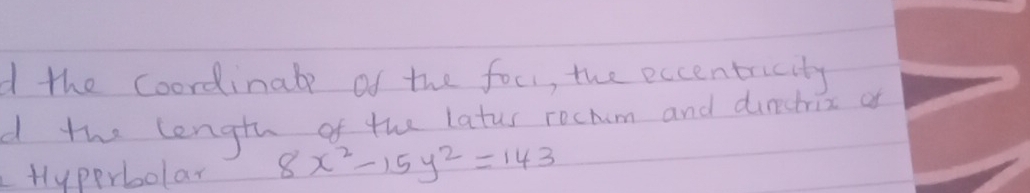 d the Coordinate of the foci, the eccentricity
d the length of the latus rectum and directrix of
Hyperbolar 8x² - 15y² = 143